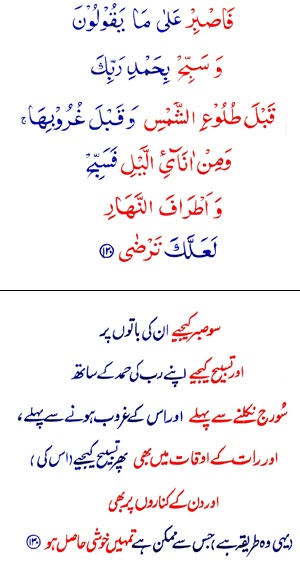 فَاصْبِرْ عَلٰى مَا يَقُوْلُوْنَ
وَ سَبِّحْ بِحَمْدِ رَبِّكَ
قَبْلَ طُلُوْعِ الشَّمْسِ وَ قَبْلَ غُرُوْبِهَا ۚ
وَ مِنْ اٰنَآئِ الَّيْلِ فَسَبِّحْ
وَ اَطْرَافَ النَّهَارِ
لَعَلَّكَ تَرْضٰى ﴿۱۳۰﴾
سو صبر کیجیے ان کی باتوں پر
اور تسبیح کیجیے اپنے رب کی حمد کے ساتھ
سُورج نکلنے سے پہلے اور اس کے غروب ہونے سے پہلے،
اور رات کے اوقات میں بھی پھر تسبیح کیجیے (اس کی)
اور دن کے کناروں پر بھی
(یہی وہ طریقہ ہے) جس سے ممکن ہے تمہیں خوشی حاصل ہو ﴿۱۳۰﴾